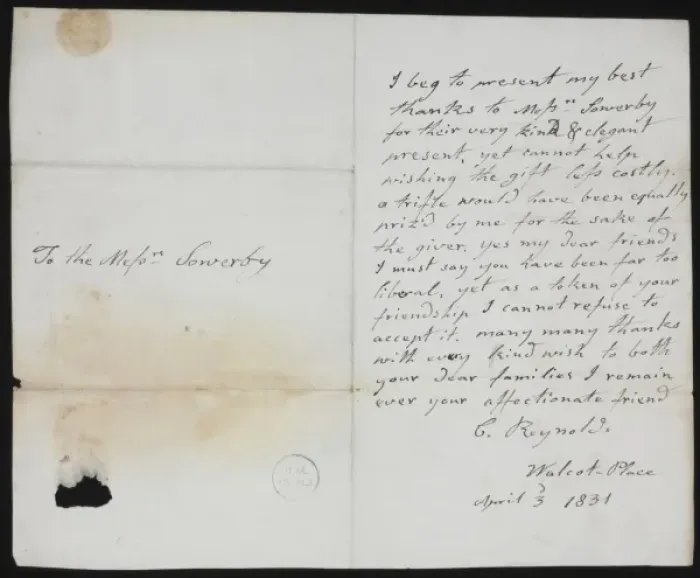 To the Messrs Sowerby
I beg to present my best
thanks to Messrs Sowerby
for their very kind & elegant
present, yet cannot help
wishing the gift less costly.
a trifle would have been equally
priz'd by me for the sake of
the giver. yes my dear friends
I must say you have been far too
liberal, yet as a token of your
friendship I cannot refuse to
accept it. many many thanks
with every kind wish to both
your dear families I remain
ever your affectionate friend
C. Reynolds
Walcot-Place
April 3d 1831